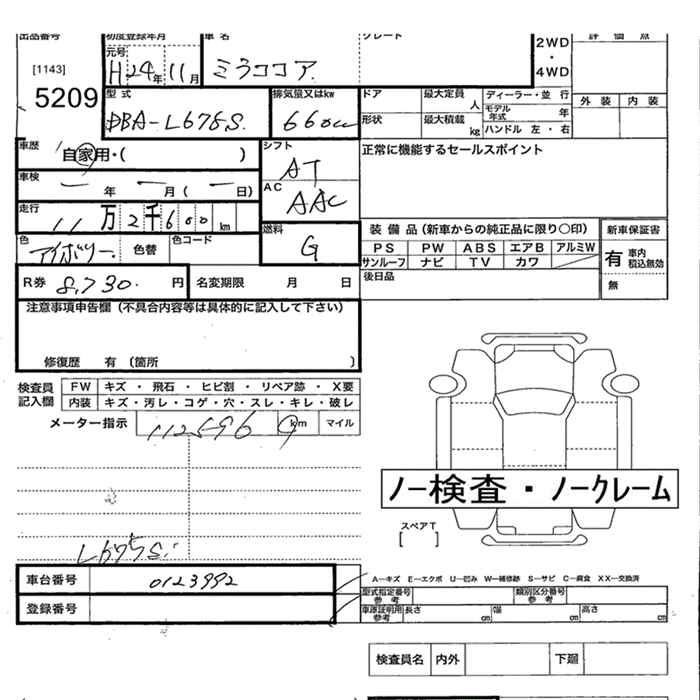 出品番号 初度登録年月 車名 グレード 2WD・4WD 評価点
[1143] 元号 H24年11月 ミラココア
5209
型式 DBA-L675S 排気量又はkw 660cc
ドア 最大定員 人 ディーラー・並行 外装 内装
形状 最大積載 kg モデル年式 年
ハンドル 左・右
車歴 自家用・( ) シフト AT 正常に機能するセールスポイント
車検 ー年ー月(ー日) AC AAC
走行 11万2千600km 燃料 G
色 アイボリー 色替 色コード
装備品(新車からの純正品に限り○印) 新車保証書
PS PW ABS エアB アルミW 有 車内積込無効
サンルーフ ナビ TV カワ
後日品 無
R券 8,730円 名変期限 月 日
注意事項申告欄(不具合内容等は具体的に記入して下さい)
修復歴 有 (箇所 )
検査員記入欄 FW キズ・飛石・ヒビ割・リペア跡・X要
内装 キズ・汚レ・コゲ・穴・スレ・キレ・破レ
メーター指示 112596 km マイル
ノー検査・ノークレーム
スペアT
[ ]
L675S
車台番号 0123992
登録番号
A―キズ E―エクボ U―凹み W―補修跡 S―サビ C―腐食 XX―交換済
型式指定番号 参考 類別区分番号 参考
車庫証明用 参考 長さ cm 幅 cm 高さ cm
検査員名 内外 下廻